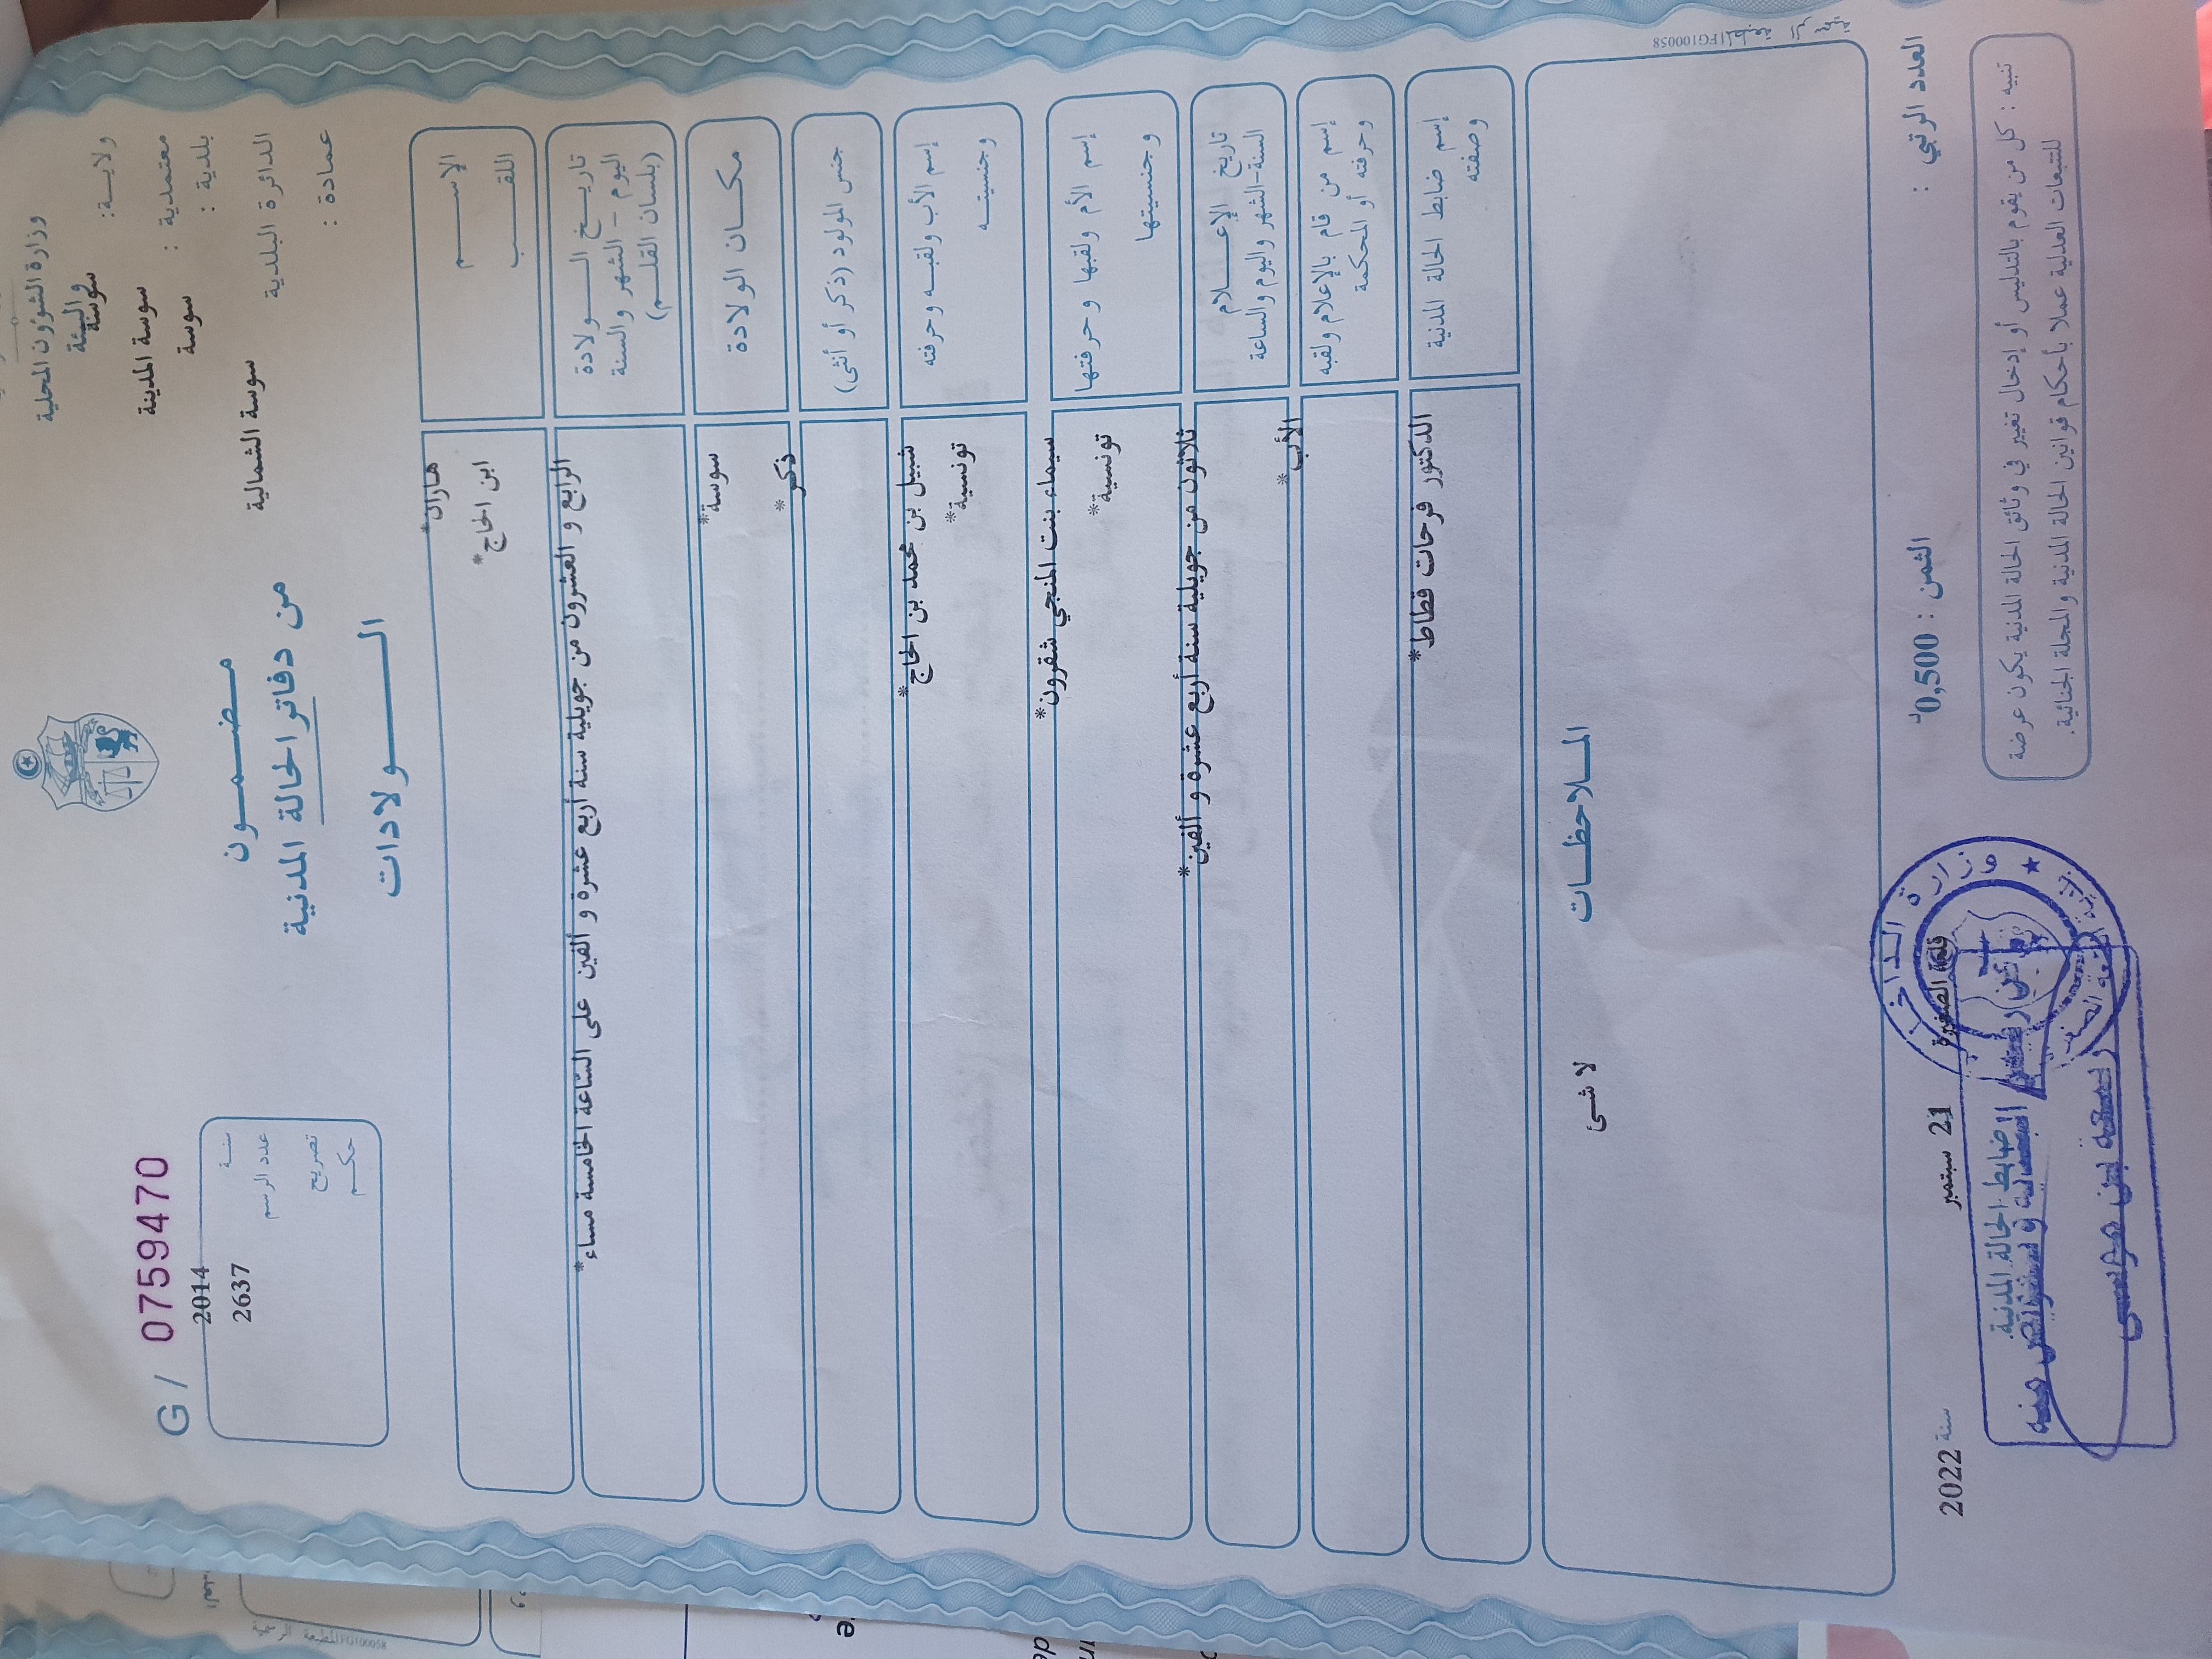 وزارة الشؤون المحلية
والبيئة
ولاية: سوسة
معتمدية : سوسة المدينة
بلدية : سوسة
الدائرة البلدية سوسة الشمالية
عمادة :
مضمون
من دفاتر الحالة المدنية
الولادات
G/ 0759470
سنة 2014
عدد الرسم 2637
تصريح
حكم
الإسم هاران*
اللقب ابن الحاج*
تاريخ الولادة
اليوم - الشهر والسنة
(بلسان القلم)
الرابع و العشرون من جويلية سنة أربع عشرة و ألفين على الساعة الخامسة مساء*
مكان الولادة
سوسة*
جنس المولود (ذكر أو أنثى)
ذكر*
إسم الأب ولقبه وحرفته
وجنسيته
شبيل بن محمد بن الحاج*
تونسية*
إسم الأم ولقبها وحرفتها
وجنسيتها
سيماء بنت المنجي شقرون*
تونسية*
تاريخ الإعلام
السنة-الشهر واليوم والساعة
ثلاثون من جويلية سنة أربع عشرة و ألفين*
إسم من قام بالإعلام ولقبه
وحرفته أو المحكمة
الأب*
إسم ضابط الحالة المدنية
وصفته
الدكتور فرحات قطاط*
الملاحظات
لا شئ
1FG100058
العدد الرتبي :
الثمن : 0,500د
القلعة الصغيرة
21 سبتمبر
سنة 2022
ضابط الحالة المدنية.
تنبيه : كل من يقوم بالتدليس أو إدخال تغيير في وثائق الحالة المدنية يكون عرضة
للتتبعات العدلية عملا بأحكام قوانين الحالة المدنية والمجلة الجنائية.